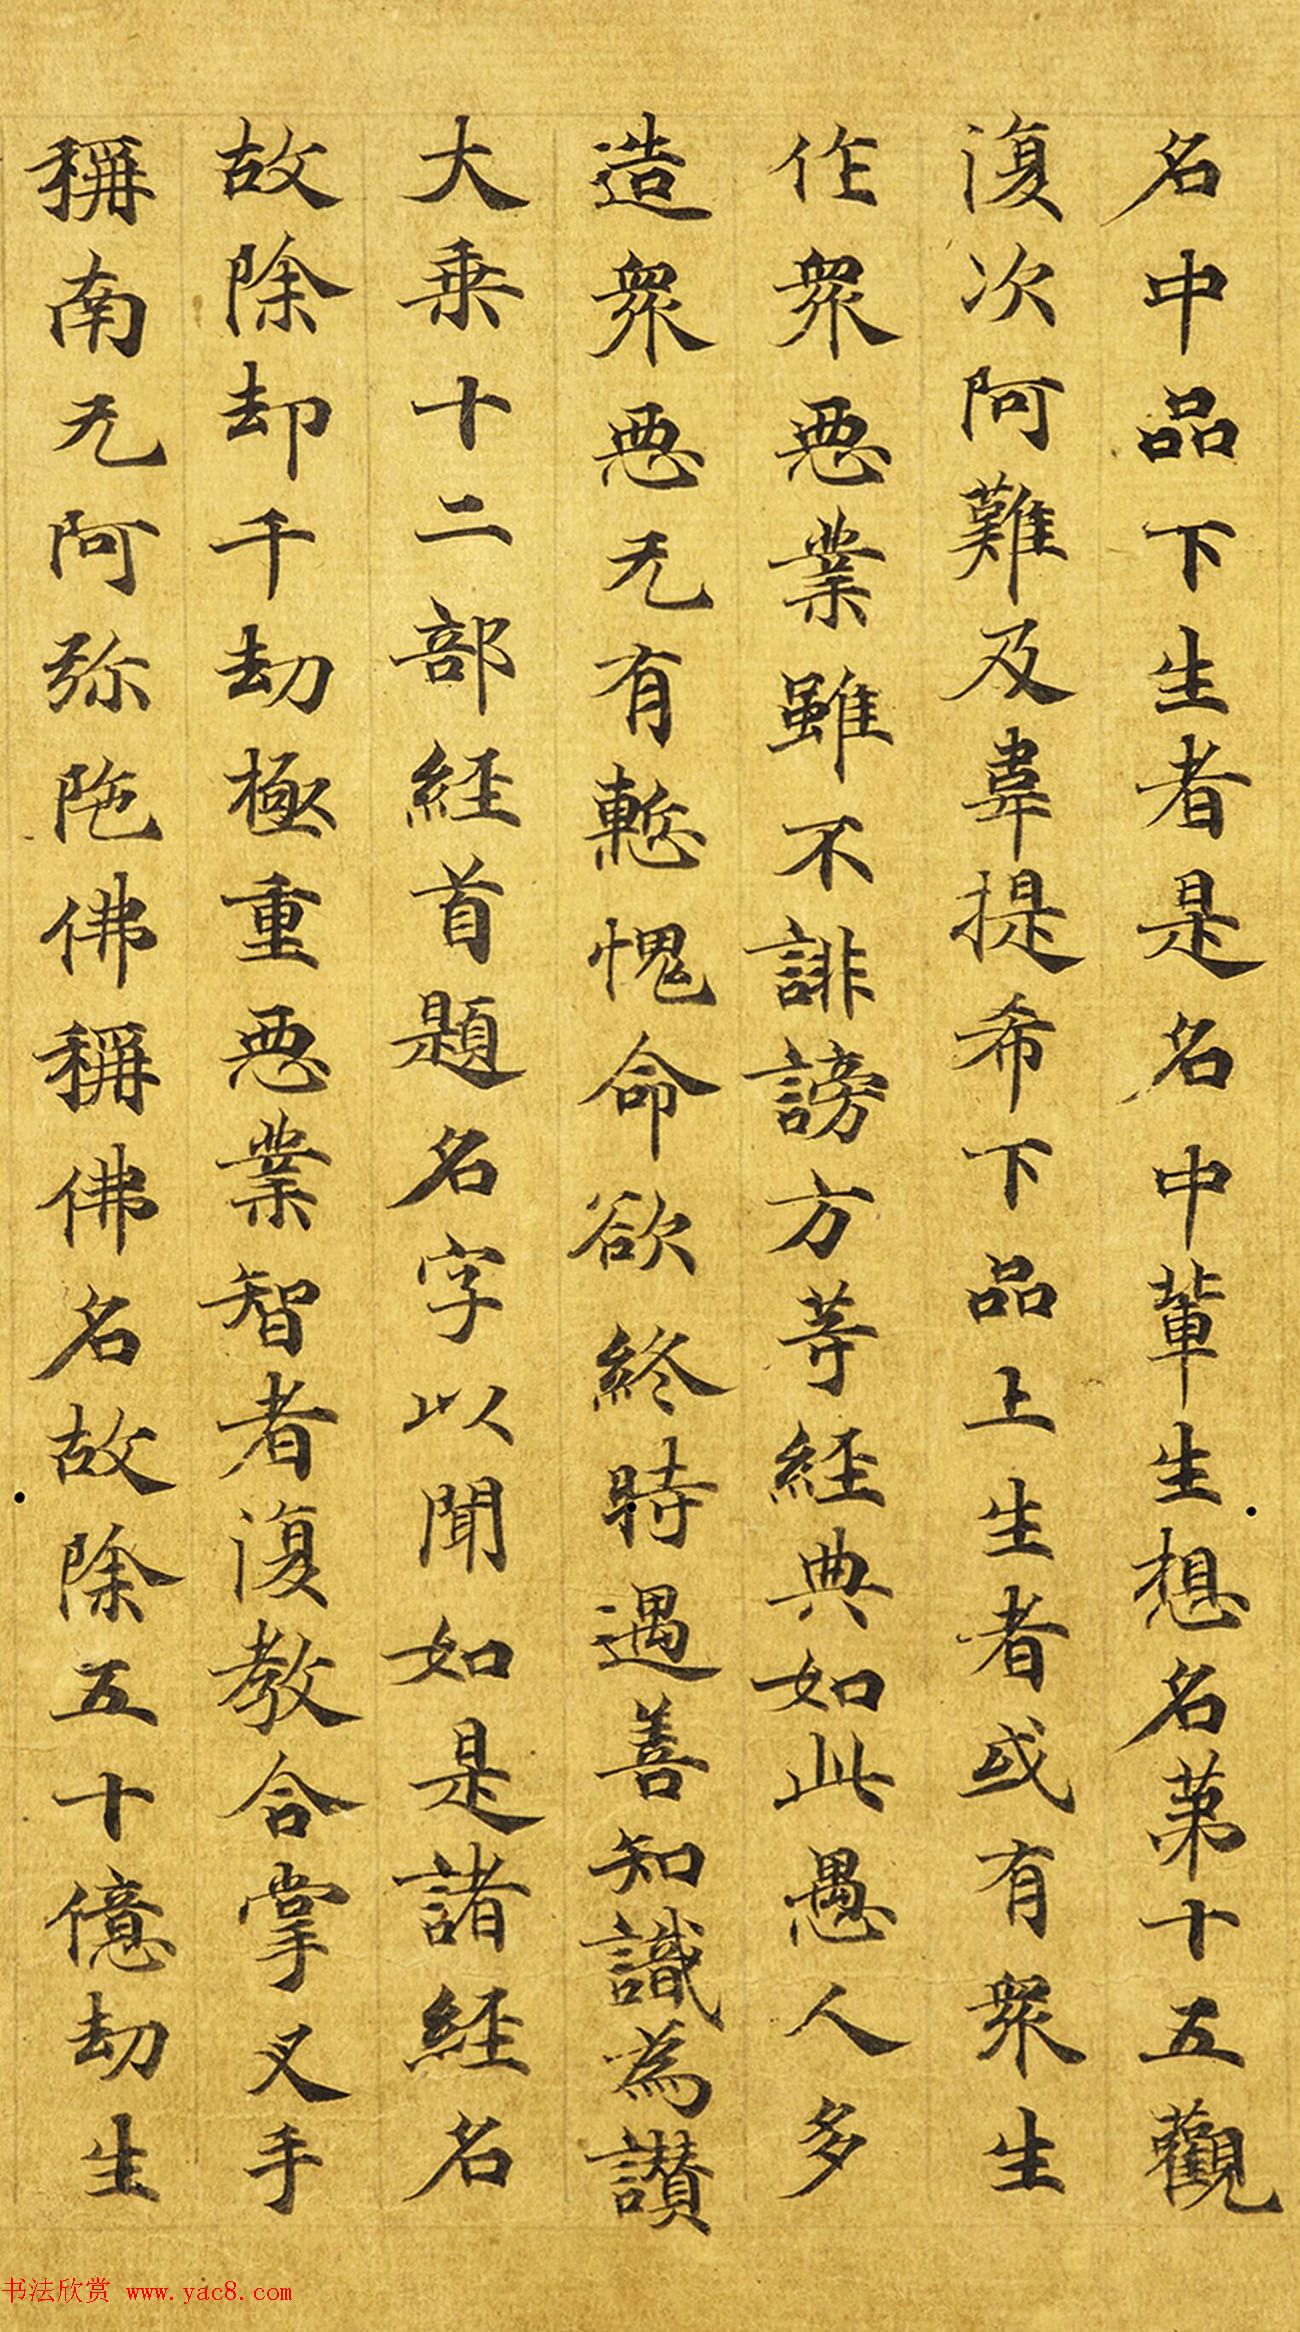 名中品下生者是名中輩生想名第十五觀
復次阿難及韋提希下品上生者或有衆生
作衆惡業雖不誹謗方等經典如此愚人多
造衆惡无有慙愧命欲終時遇善知識為讃
大乗十二部経首題名字以聞如是諸経名
故除却千劫極重惡業智者復教合掌叉手
稱南无阿弥陁佛稱佛名故除五十億劫生
书法欣赏 www.yac8.com